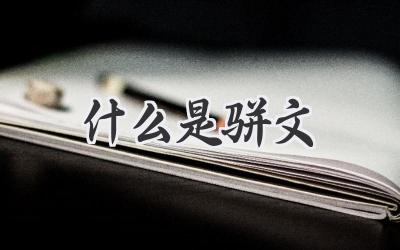 什么是骈文